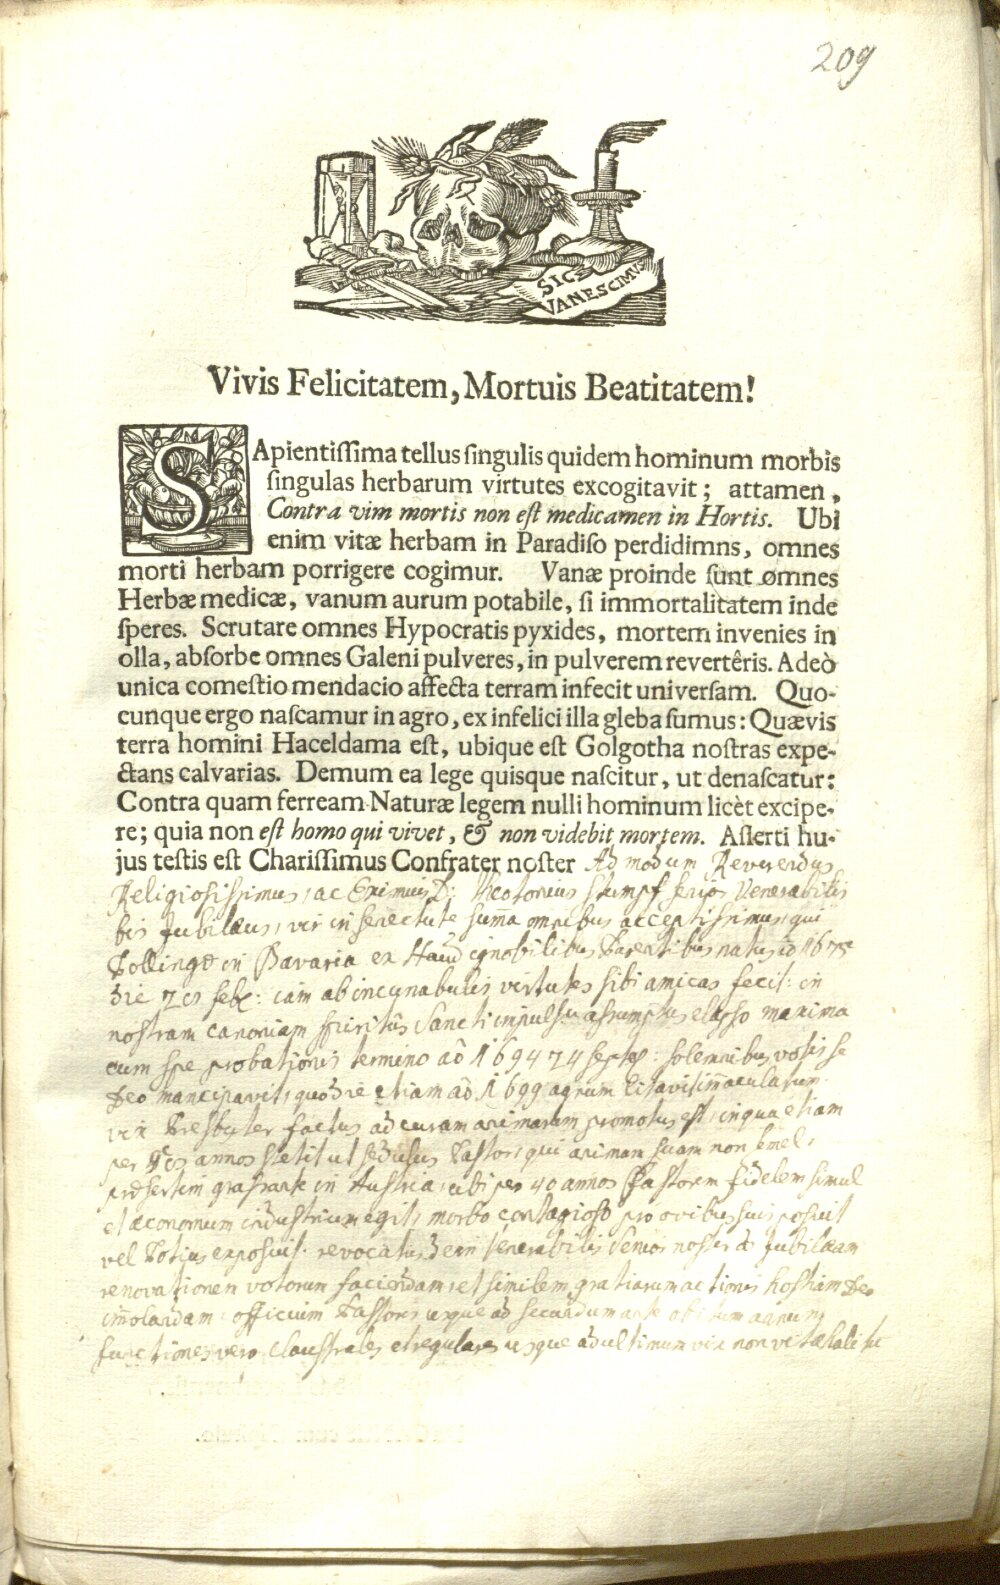 209
SIC
VANESCIMUS
Vivis Felicitatem, Mortuis Beatitatem!
SApientiſſima tellus ſingulis quidem hominum morbis
ſingulas herbarum virtutes excogitavit; attamen,
Contra vim mortis non eſt medicamen in Hortis. Ubi
enim vitæ herbam in Paradiſo perdidimns, omnes
morti herbam porrigere cogimur. Vanæ proinde ſunt omnes
Herbæ medicæ, vanum aurum potabile, ſi immortalitatem inde
ſperes. Scrutare omnes Hypocratis pyxides, mortem invenies in
olla, abſorbe omnes Galeni pulveres, in pulverem revertêris. Adeò
unica comeſtio mendacio affecta terram infecit univerſam. Quo-
cunque ergo naſcamur in agro, ex infelici illa gleba ſumus: Quævis
terra homini Haceldama eſt, ubique eſt Golgotha noſtras expe-
ctans calvarias. Demum ea lege quisque naſcitur, ut denaſcatur:
Contra quam ferream Naturæ legem nulli hominum licèt excipe-
re; quia non eſt homo qui vivet, & non videbit mortem. Aſſerti hu-
jus teſtis eſt Chariſſimus Confrater noſter Ad modum Reverendus
Religiosissimus, ac Eximius D: Theotonius Stumpf senior Venerabilis
bis Jubilæus, vir in senectute suma omnibus acceptissimus, qui
Pollingæ in Bavaria ex Haud ignobilibus Parentibus natus
die febr: iam ab incunabulis virtutes sibi amicas fecit: in
nostram canoniam spiritûs Sancti impulsu assumptus elapso maxima
cum spe probationis termino aô 1694 septeb: solemnibus votis se
Deo mancipavit, quo die etiam aô 1699 agnum litavit immaculatum.
vix Presbyter factus ad curam animarum promotus est, in qua etiam
per annos stetit ut sedulus Pastor, qui animam suam non semel,
præsertim in Austria, ubi per 40 annos Pastorem fidelem simul
et æconomum industrium egit, morbo contagioso pro ovibus suis posuit
vel potius exposuit. revocatus Venerabilis Senior noster ad Jubilæam
renovationem votorum faciendam, et similem gratiarum actionis hostiam Deo
immolandam: officium Pastoris usque ad secundum ante obitum annum
functiones vero claustrales et regulares usque ad ultimum vix non vitæ halitu